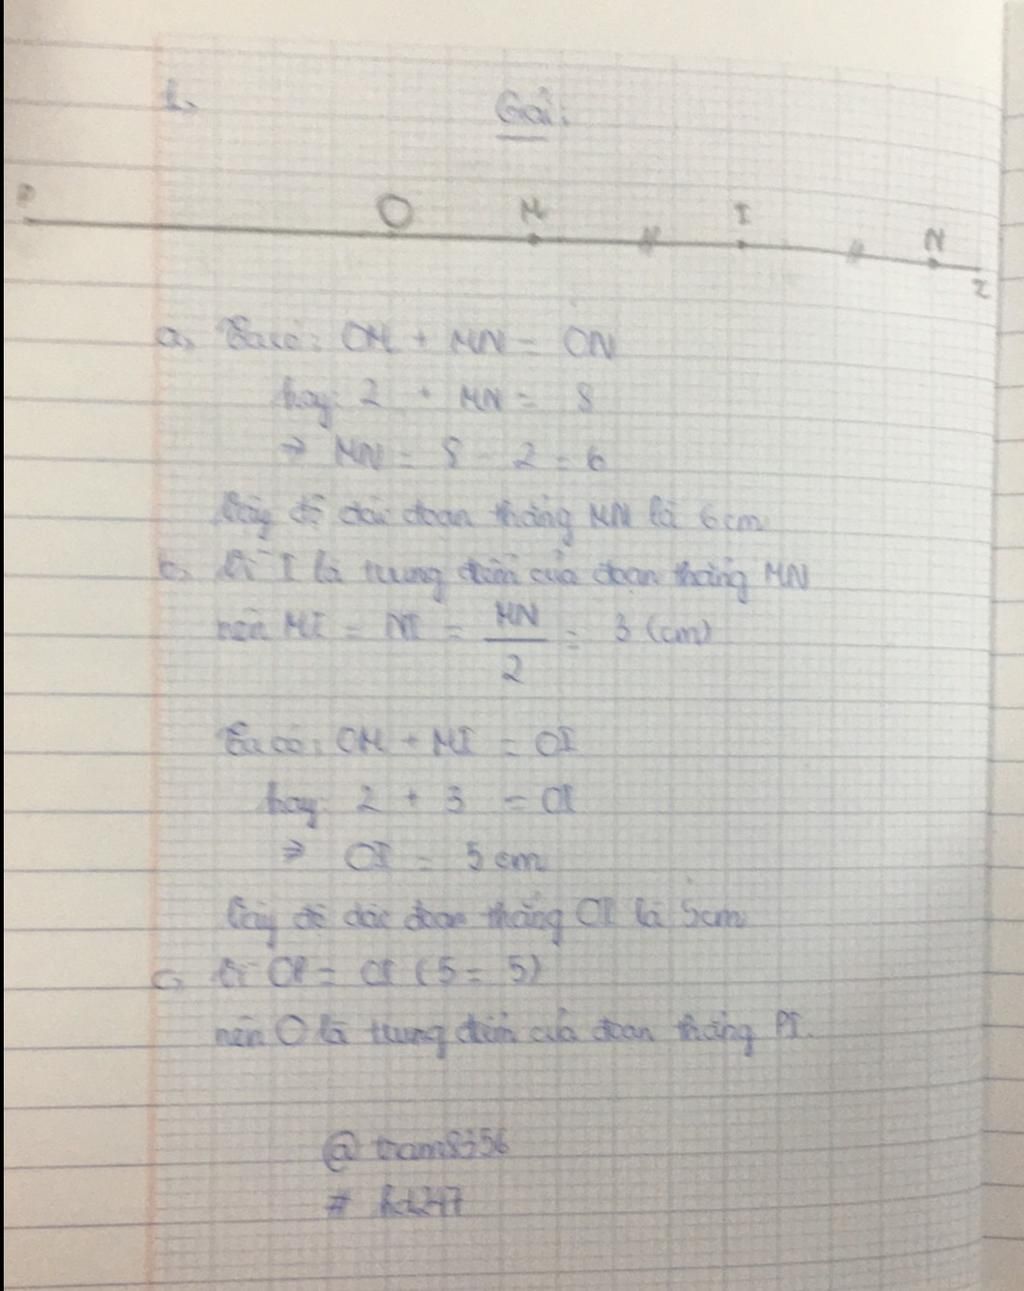 1.
Giải:
P O M I N
z
a, Ta có: OM + MN = ON
hay: 2 + MN = 8
⇒ MN = 8 - 2 = 6
Vậy độ dài đoạn thẳng MN là 6cm
b, Vì I là trung điểm của đoạn thẳng MN
nên MI = NI = MN/2 = 3 (cm)
Ta có: OM + MI = OI
hay: 2 + 3 = OI
⇒ OI = 5 cm
Vậy độ dài đoạn thẳng OI là 5cm
c, Vì OP = OI (5 = 5)
nên O là trung điểm của đoạn thẳng PI.
@ tram8356